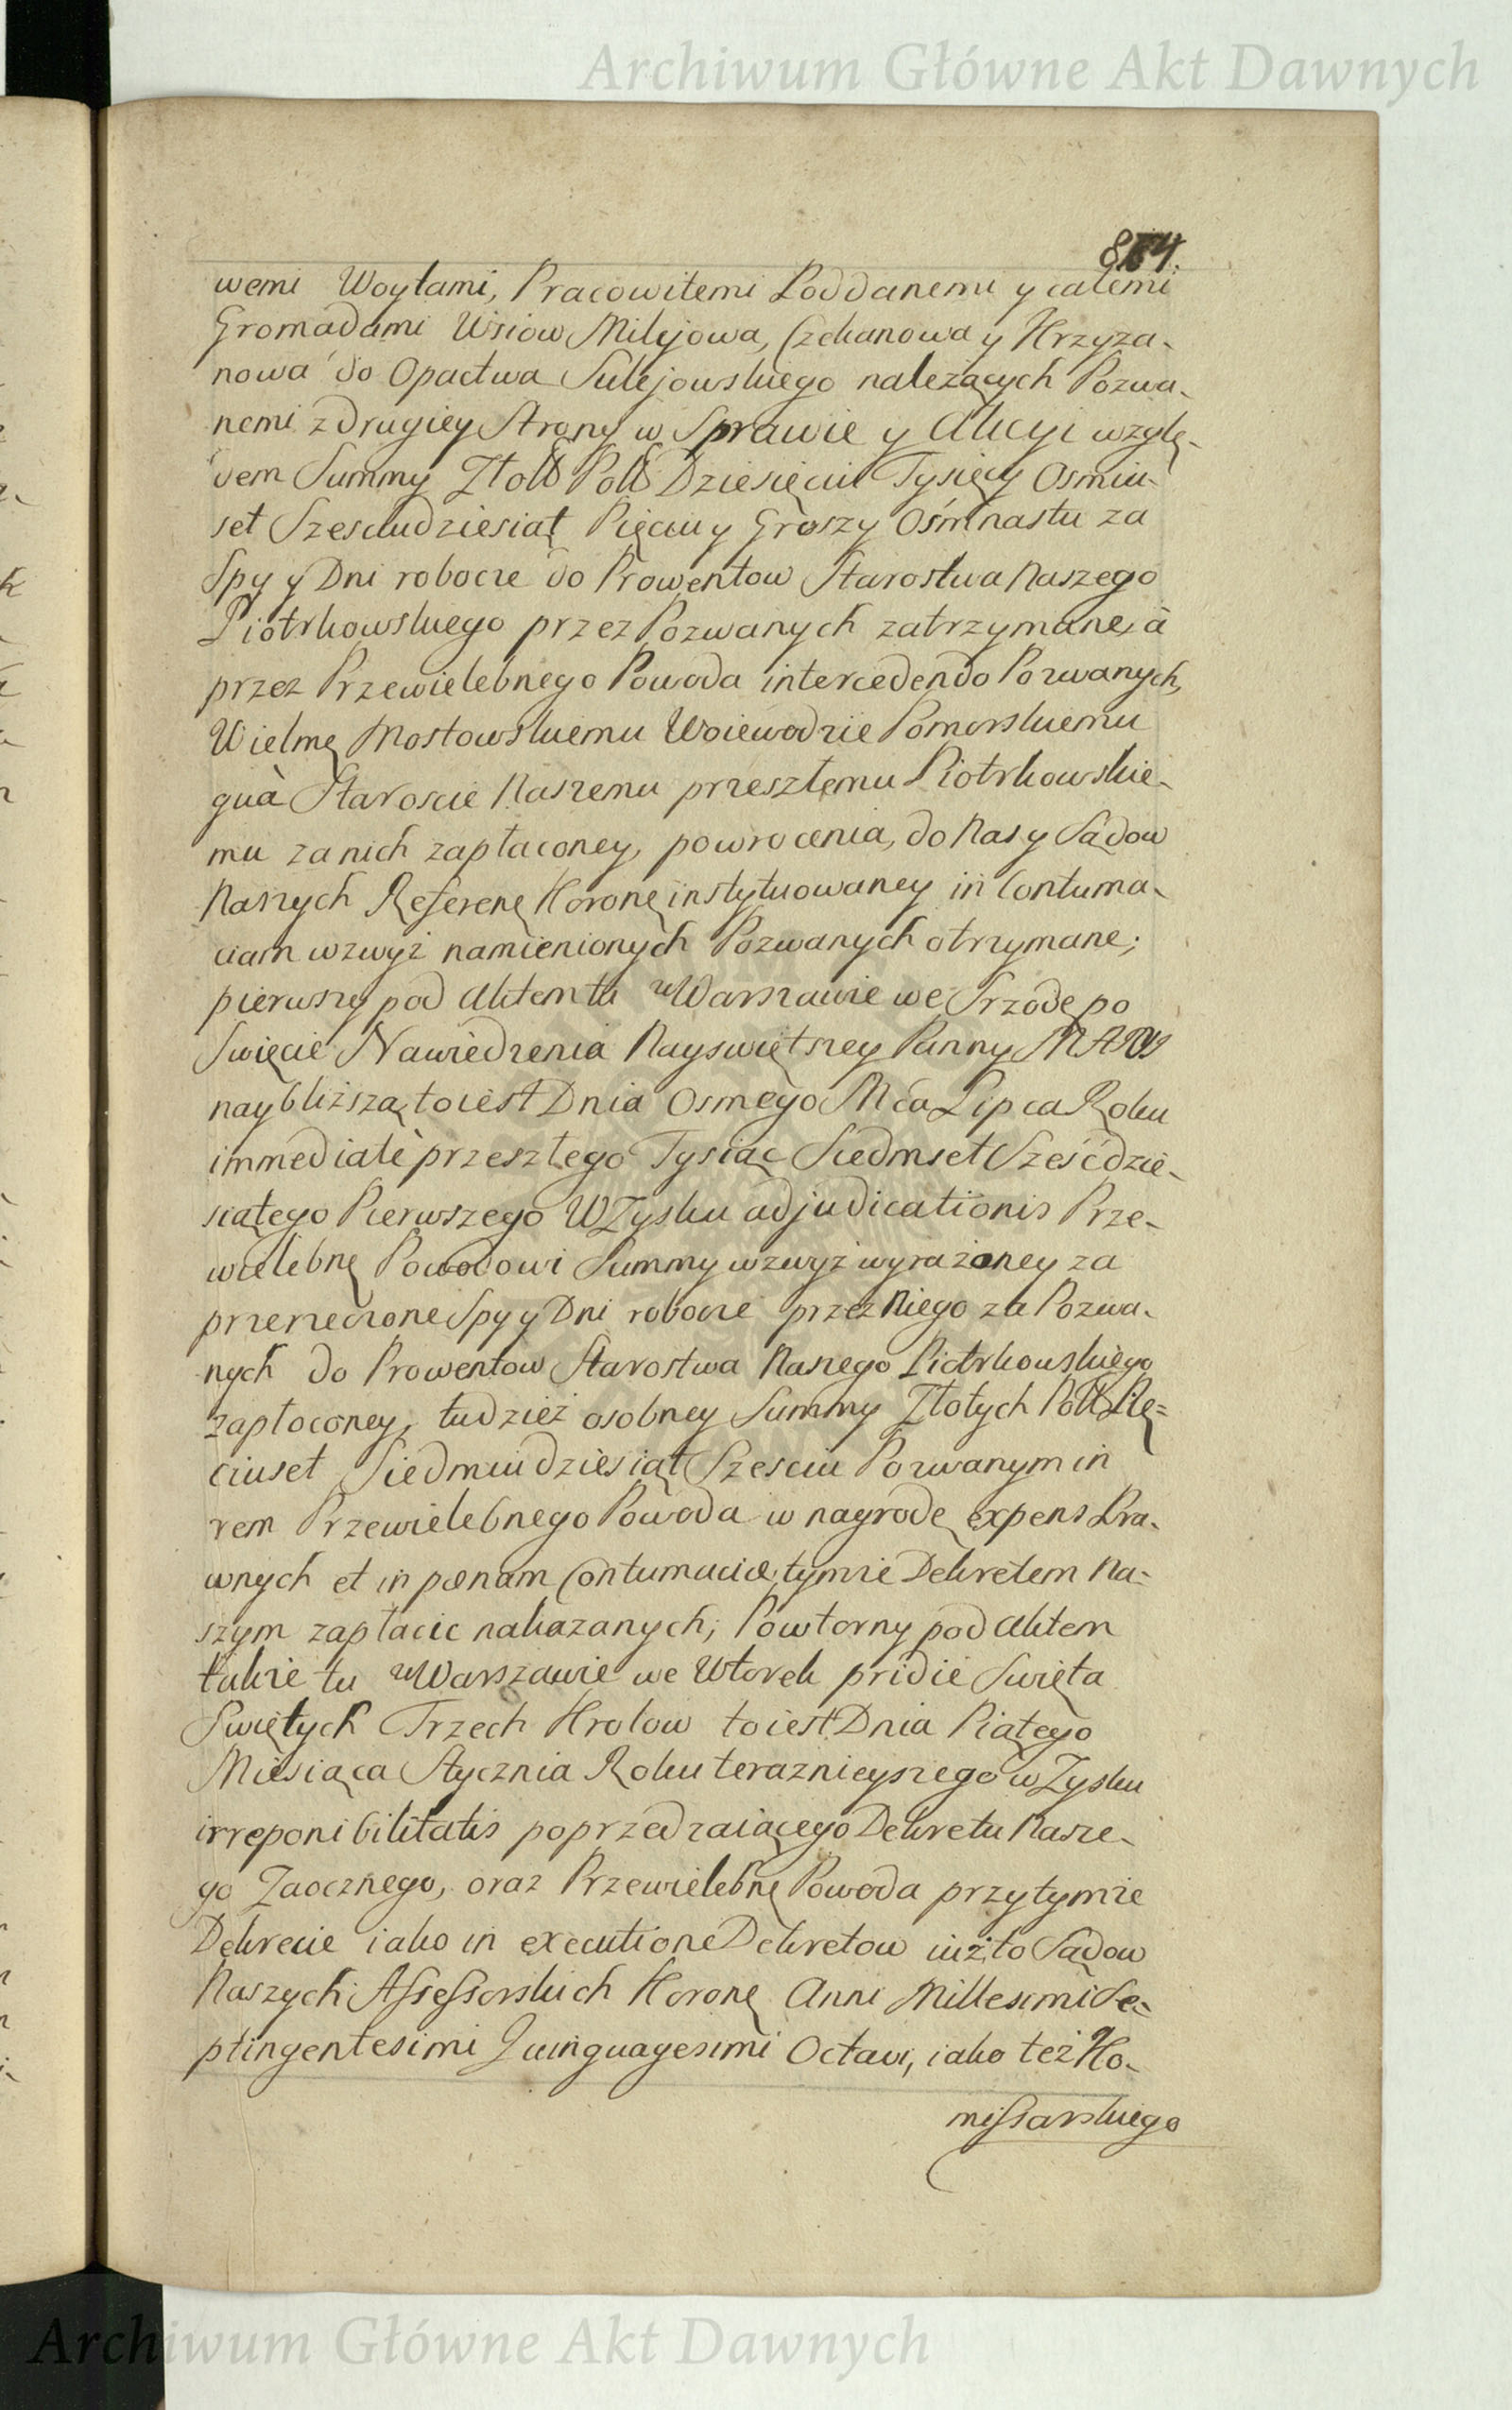 Archiwum Główne Akt Dawnych
wemi Woytami, Pracowitemi Poddanemi y całemi
Gromadami Wsiow Milejowa, Czekanowa y Krzyza-
nowa do Opactwa Sulejowskiego należących Pozwa-
nemi z drugiey Strony w Sprawie y Akcyi wzglę-
dem Summy Złott Poll Dziesięciu Tysięcy Osmiu-
set Szesciudziesiąt Pięciu y Groszy Ośmnastu za
Spy y Dni robocze do Prowentow Starostwa Naszego
Piotrkowskiego przez Pozwanych zatrzymane, à
przez Przewielebnego Powoda intercedendo Pozwanych,
Wielmę Mostowskiemu Woiewodzie Pomorskiemu
quà Staroscie Naszemu przeszłemu Piotrkowskie-
mu za nich zapłaconey, powrocenia, do Nas y Sądow
Naszych Referenę Koronę instytuowaney in Contuma-
ciam wzwyż namienionych Pozwanych otrzymane;
pierwszy pod Aktem tu w Warszawie we Srzodę po
Swięcie Nawiedzenia Nayswiętszey Panny MARYI
naybliższą to iest Dnia Osmego Mca Lipca Roku
immediatè przeszłego Tysiąc Siedmset Sześćdzie-
siątego Pierwszego W Zysku adjudicationis Prze-
wielebnę Powodowi Summy wzwyż wyrażoney za
przerzeczone Spy y Dni robocze przez Niego za Pozwa-
nych do Prowentow Starostwa Naszego Piotrkowskiego
zapłoconey, tudzież osobney Summy Złotych Poll Pię=
ciuset Siedmiudziesiąt Szesciu Pozwanym in
rem Przewielebnego Powoda w nagrodę expens Pra-
wnych et in pœnam Contumaciæ tymże Dekretem Na=
szym zapłacic nakazanych; Powtorny pod Aktem
także tu w Warszawie we Wtorek pridie Swięta
Swiętych Trzech Krolow to iest Dnia Piątego
Miesiąca Stycznia Roku teraznieyszego w Zysku
irreponibilitatis poprzedzaiącego Dekretu Nasze-
go Zaocznego, oraz Przewielebnę Powoda przy tymże
Dekrecie iako in executione Dekretow iuż to Sądow
Naszych Assessorskich Koronę Anni Millesimi Se-
ptingentesimi Quinquagesimi Octavi, iako też Ko-
missarskiego
Archiwum Główne Akt Dawnych